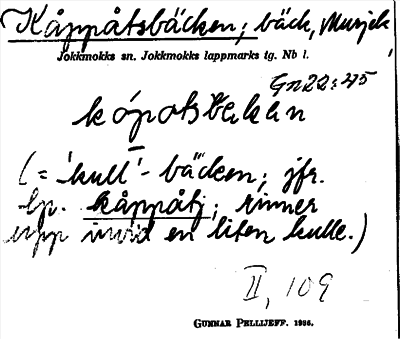 Kåppåtsbäcken; bäck, Murjek
Jokkmokks sn. Jokkmokks lappmarks tg. Nb l.
Gn22:45
kópotsbekkən
(= 'kull'-bäcken; jfr.
lp. kåppåtj; rinner
upp invid en liten kulle.)
II, 109
GUNNAR PELLIJEFF. 1956.